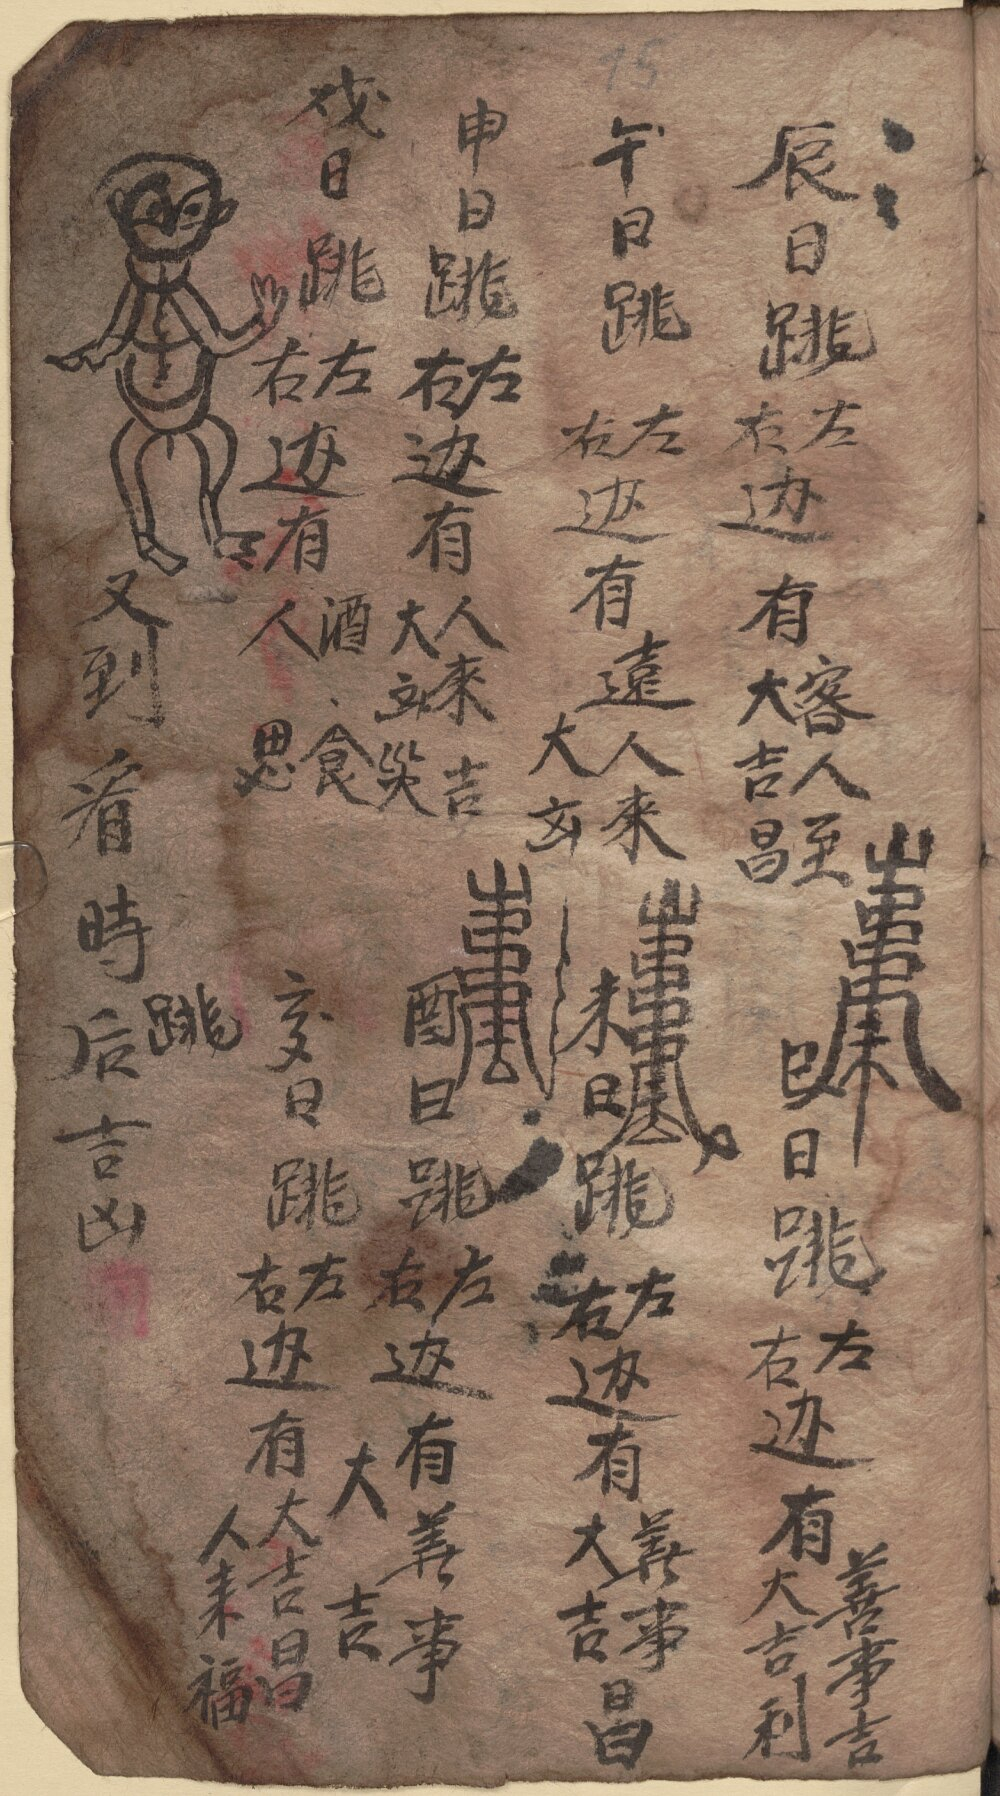 辰日跳左右边有客人至大吉昌
巳日跳左右边有善事吉大吉利
午日跳左右边有遠人来大凶
未日跳左右边有善事大吉昌
申日跳左右边有人来吉大災
酉日跳左右边有善事大吉
戌日跳左右边有酒食人思
亥日跳左右边有大吉昌人来福
又到看時跳后吉凶